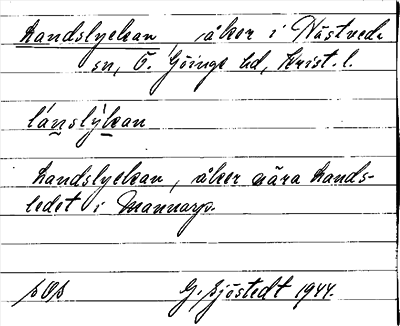 Landslyckan, åker i Nästveds
sn, Ö. Göinge hd, Krist. l.
lánslýkan
Landslyckan, åker nära lands-
ledet i Mannarp.
pOp G. Sjöstedt 1944.